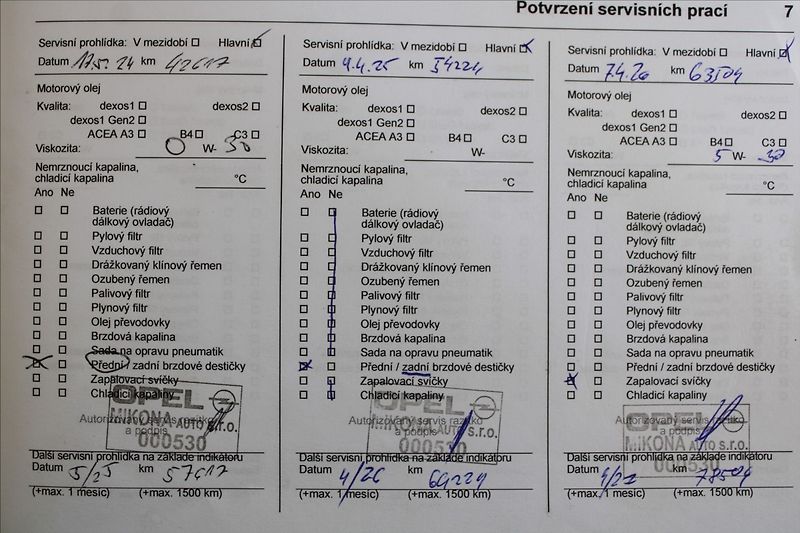 Potvrzení servisních prací 7
Servisní prohlídka: V mezidobí Hlavní
Datum 17.5.24 km 42617
Motorový olej
Kvalita: dexos1 dexos2
dexos1 Gen2
ACEA A3 B4 C3
Viskozita: 0 W- 30
Nemrznoucí kapalina,
chladicí kapalina °C
Ano Ne
Baterie (rádiový
dálkový ovladač)
Pylový filtr
Vzduchový filtr
Drážkovaný klínový řemen
Ozubený řemen
Palivový filtr
Plynový filtr
Olej převodovky
Brzdová kapalina
Sada na opravu pneumatik
Přední / zadní brzdové destičky
Zapalovací svíčky
Chladicí kapaliny
OPEL
Autorizovaný servis razítko
a podpis
MIKONA AUTO s.r.o.
000530
Další servisní prohlídka na základě indikátoru
Datum 5/25 km 57617
(+max. 1 měsíc) (+max. 1500 km)
Servisní prohlídka: V mezidobí Hlavní
Datum 9.4.25 km 54224
Motorový olej
Kvalita: dexos1 dexos2
dexos1 Gen2
ACEA A3 B4 C3
Viskozita: W-
Nemrznoucí kapalina,
chladicí kapalina °C
Ano Ne
Baterie (rádiový
dálkový ovladač)
Pylový filtr
Vzduchový filtr
Drážkovaný klínový řemen
Ozubený řemen
Palivový filtr
Plynový filtr
Olej převodovky
Brzdová kapalina
Sada na opravu pneumatik
Přední / zadní brzdové destičky
Zapalovací svíčky
Chladicí kapaliny
OPEL
Autorizovaný servis razítko
a podpis
MIKONA AUTO s.r.o.
000530
Další servisní prohlídka na základě indikátoru
Datum 4/26 km 69224
(+max. 1 měsíc) (+max. 1500 km)
Servisní prohlídka: V mezidobí Hlavní
Datum 7.4.26 km 63504
Motorový olej
Kvalita: dexos1 dexos2
dexos1 Gen2
ACEA A3 B4 C3
Viskozita: 5 W- 30
Nemrznoucí kapalina,
chladicí kapalina °C
Ano Ne
Baterie (rádiový
dálkový ovladač)
Pylový filtr
Vzduchový filtr
Drážkovaný klínový řemen
Ozubený řemen
Palivový filtr
Plynový filtr
Olej převodovky
Brzdová kapalina
Sada na opravu pneumatik
Přední / zadní brzdové destičky
Zapalovací svíčky
Chladicí kapaliny
OPEL
Autorizovaný servis razítko
a podpis
MIKONA AUTO s.r.o.
000530
Další servisní prohlídka na základě indikátoru
Datum 4/27 km 78504
(+max. 1 měsíc) (+max. 1500 km)